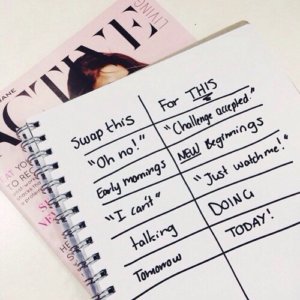 LIVING
ACTIVE
Swap this For THIS
"Oh no!" "Challenge accepted."
Early mornings NEW Beginnings
"I can't" "Just watch me!"
talking DOING
Tomorrow TODAY!